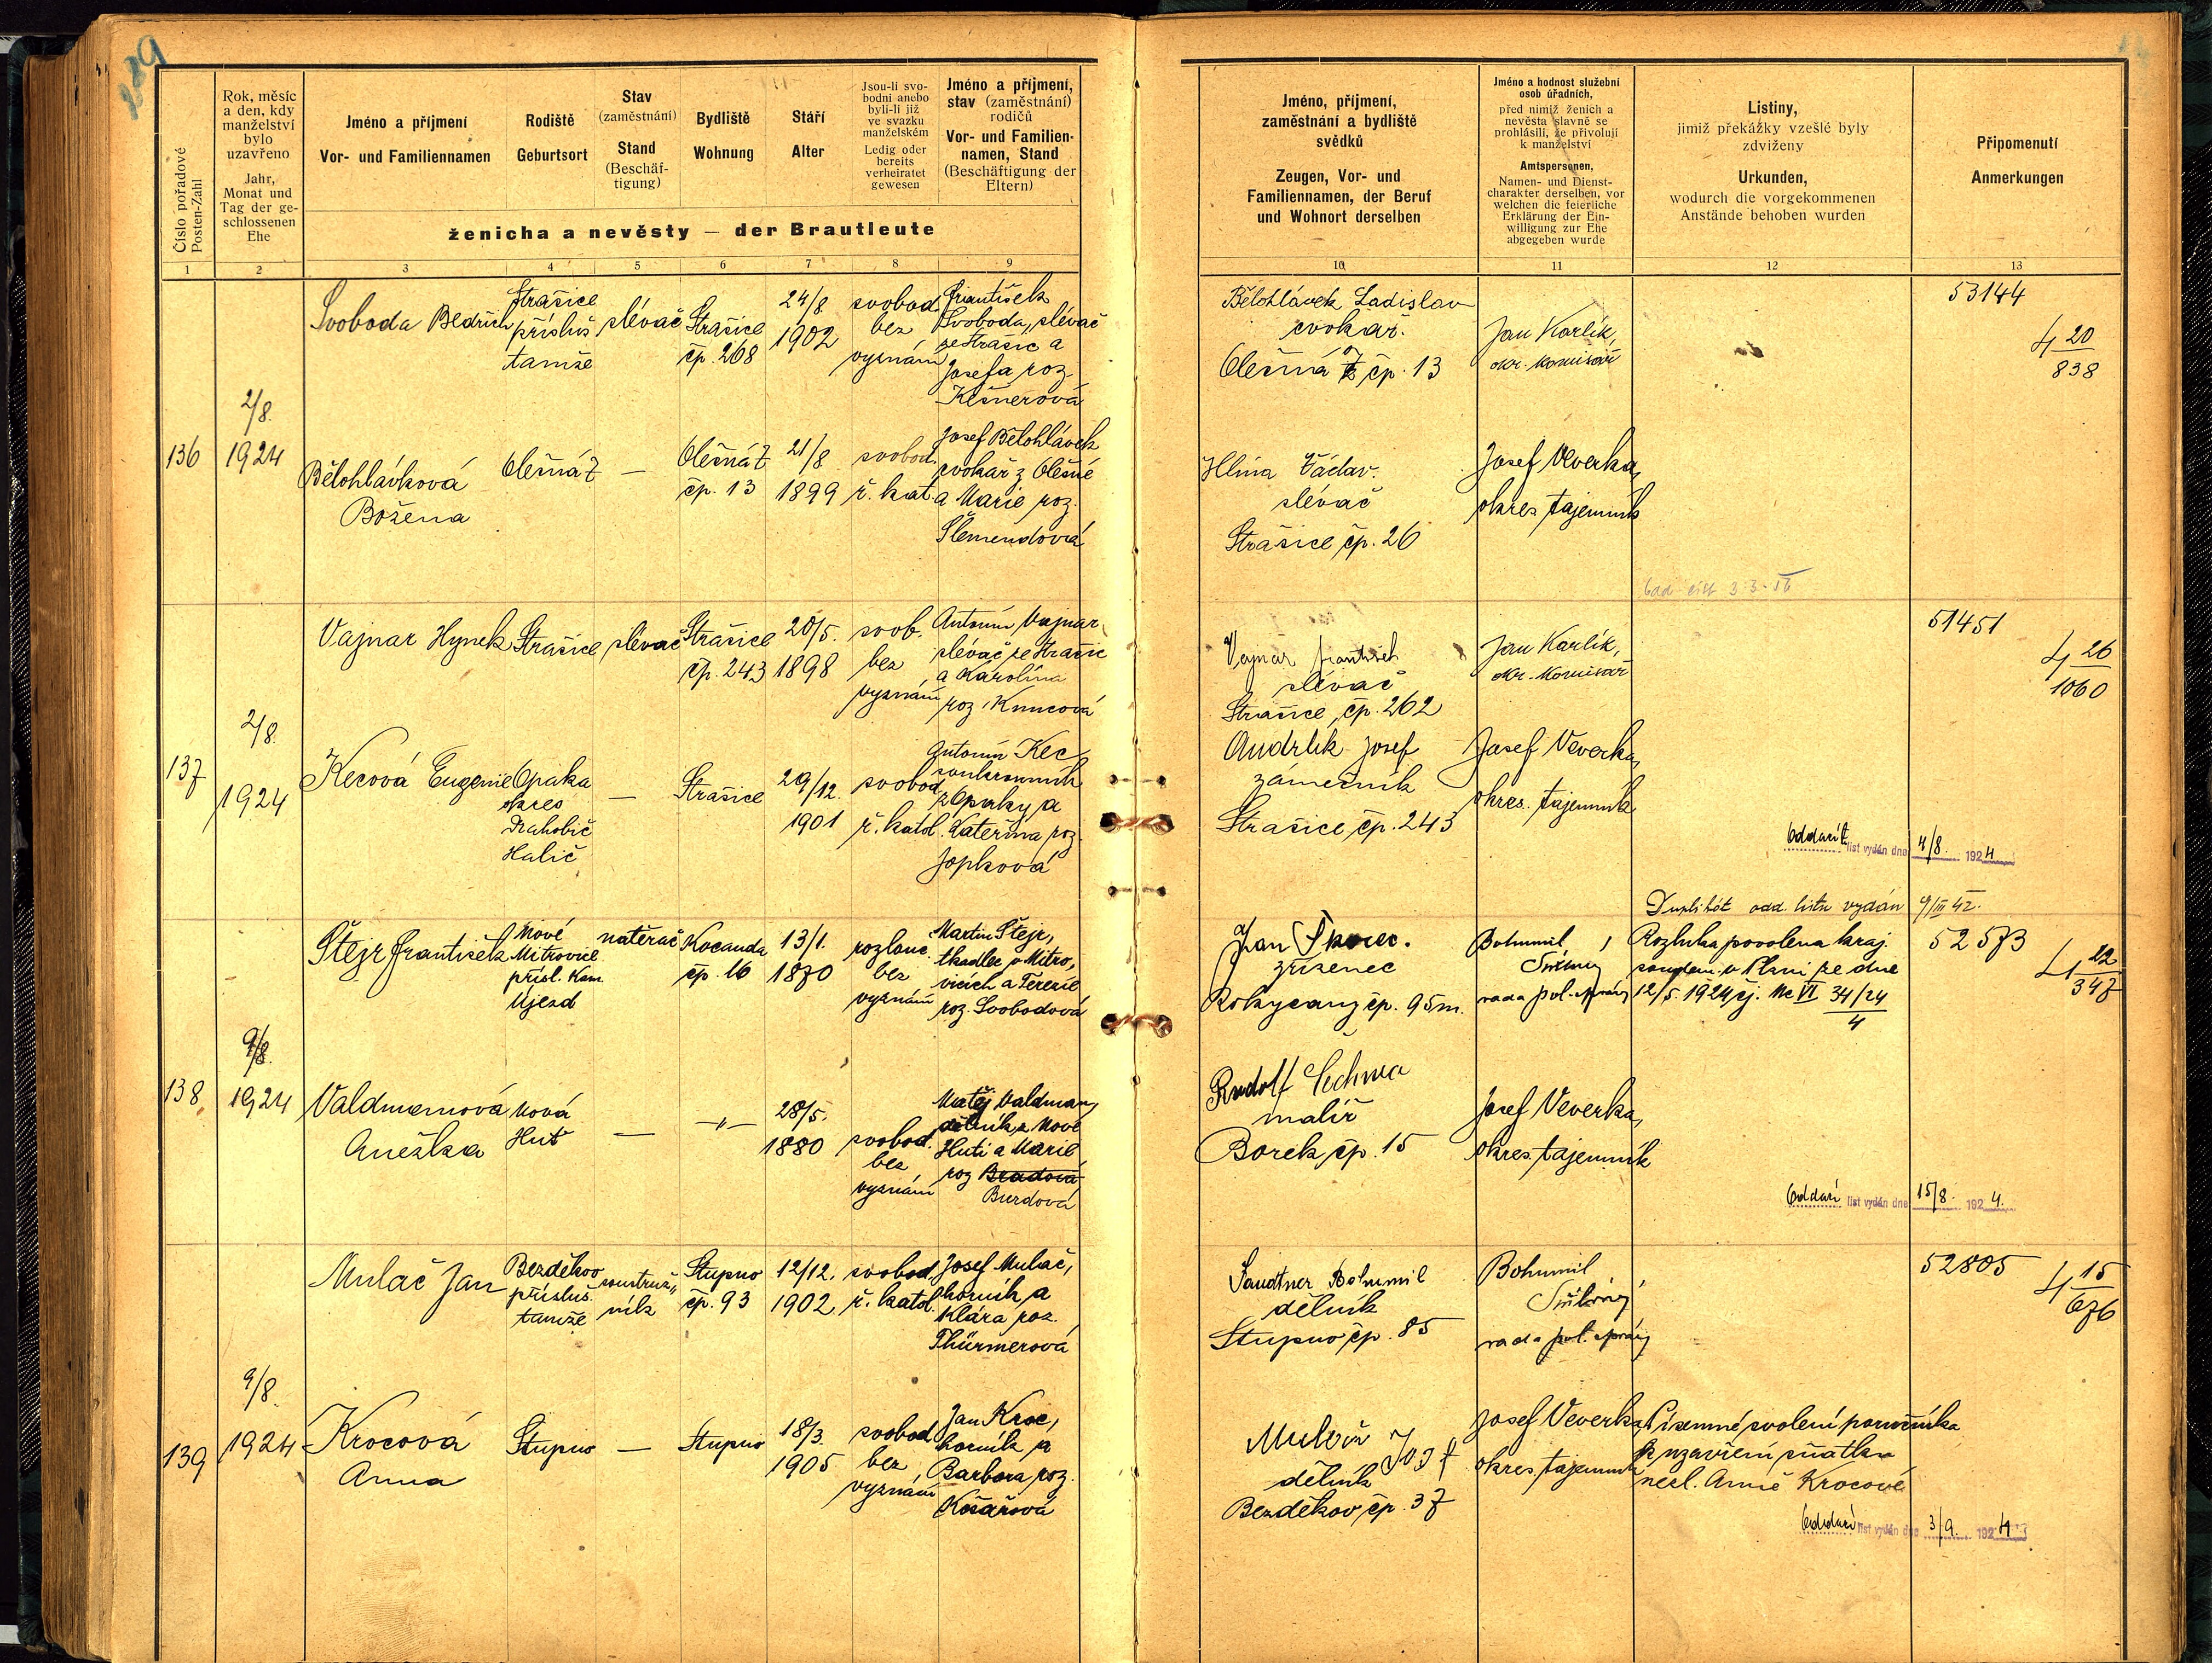 Číslo pořadové
Posten-Zahl
Rok, měsíc
a den, kdy
manželství
bylo
uzavřeno
Jahr,
Monat und
Tag der ge-
schlossenen
Ehe
Jméno a příjmení
Vor- und Familiennamen
Rodiště
Geburtsort
Stav
(zaměstnání)
Stand
(Beschäf-
tigung)
Bydliště
Wohnung
Stáří
Alter
Jsou-li svo-
bodni anebo
byli-li již
ve svazku
manželském
Ledig oder
bereits
verheiratet
gewesen
Jméno a příjmení,
stav (zaměstnání)
rodičů
Vor- und Familien-
namen, Stand
(Beschäftigung der
Eltern)
ženicha a nevěsty — der Brautleute
1 2 3 4 5 6 7 8 9
Jméno, příjmení,
zaměstnání a bydliště
svědků
Zeugen, Vor- und
Familiennamen, der Beruf
und Wohnort derselben
Jméno a hodnost služební
osob úřadních,
před nimiž ženich a
nevěsta slavně se
prohlásili, že přivolují
k manželství
Amtspersonen,
Namen- und Dienst-
charakter derselben, vor
welchen die feierliche
Erklärung der Ein-
willigung zur Ehe
abgegeben wurde
Listiny,
jimiž překážky vzešlé byly
zdviženy
Urkunden,
wodurch die vorgekommenen
Anstände behoben wurden
Připomenutí
Anmerkungen
10 11 12 13
136
2/8.
1924
Svoboda Bedřich
Strašice
přísluš
tamže
slévač
Strašice
čp. 268
24/8
1902
svobod.
bez
vyznání
František
Svoboda, slévač
ze Strašic a
Josefa roz.
Kešnerová
Bělohlávková
Božena
Olešná Z
—
Olešná Z
čp. 13
21/8
1899
svobod.
ř. kat.
Josef Bělohlávek
cvokař z Olešné
a Marie roz.
Šlemendová
Bělohlávek Ladislav
cvokař.
Olešná Z čp. 13
Hlína Václav.
slévač
Strašice čp. 26
Jan Karlík,
okr. komisař
Josef Veverka,
okres. tajemník
53144
4 20
838
137
2/8.
1924
Vajnar Hynek
Strašice
slévač
Strašice
čp. 243
20/5.
1898
svob.
bez
vyznání
Antonín Vajnar,
slévač ze Strašic
a Karolína
roz.
Kecová Eugenie
Opaka
okres
Halič
—
Strašice
29/12.
1901
svobod.
ř. katol.
Antonín Kec
soukromník
z Opaky a
Kateřina roz.
Jopková
Vajnar František
slévač
Strašice, čp. 262
Andrlík Josef
zámečník
Strašice čp. 243
Jan Karlík,
okr. komisař
Josef Veverka,
okres. tajemník
51451
4 26
1060
Oddací list vydán dne 4/8. 1924
Duplikát odd. listu vydán 9/III 42.
138
9/8.
1924
Štejr František
Nové
Mitrovice
přísl. Kam.
Újezd
natěrač
Kocanda
čp. 16
13/1.
1870
rozlouč.
bez
vyznání
Martin Štejr,
tkadlec v Mitro-
vicích a Terezie
roz. Svobodová
Valdmanová
Anežka
Nová
Huť
—
—„—
28/5.
1880
svobod.
bez
vyznání
Matěj Valdman,
dělník z Nové
Huti a Marie
roz. Bradová
Burdová
Jan Škorec.
zřízenec
Rokycany čp. 95 m.
Rudolf Čechura
malíř
Borek čp. 15
Bohumil
rada pol. správy
Josef Veverka,
okres. tajemník
Rozluka povolena kraj.
soudem v Plzni ze dne
12/5. 1924 čj. Nc VI 34/24
4
52573
4 22
347
Oddací list vydán dne 15/8. 1924.
139
9/8.
1924
Mulač Jan
Bezděkov
přísluš.
tamže
soustruž-
ník
Stupno
čp. 93
12/12.
1902
svobod.
ř. katol.
Josef Mulač,
horník a
Klára roz.
Thürmerová
Krocová
Anna
Stupno
—
Stupno
18/3.
1905
svobod.
bez
vyznání
Jan Kroc,
horník a
Barbora roz.
Košařová
Sandtner Bohumil
dělník
Stupno čp. 85
Mulač Josef
dělník
Bezděkov, čp. 37
Bohumil
rada pol. správy
Josef Veverka,
okres. tajemník
Písemné svolení poručníka
k uzavření sňatku
nezl. Anně Krocové
52805
4 15
676
Oddací list vydán dne 3/9. 1924